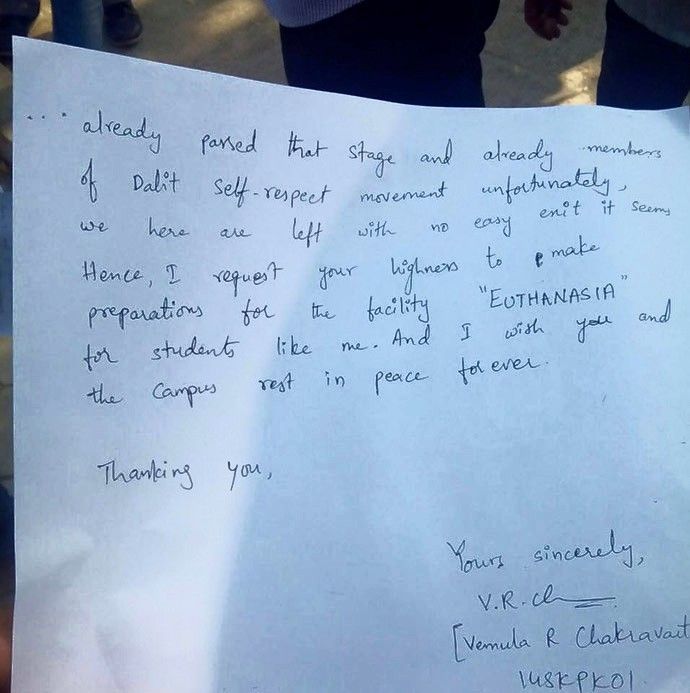 ... already passed that stage and already members
of Dalit Self-respect movement unfortunately,
we here are left with no easy exit it seems
Hence, I request your highness to make
preparations for the facility "EUTHANASIA"
for students like me. And I wish you and
the Campus rest in peace forever.
Thanking you,
Yours sincerely,
V.R.Ch
[Vemula R Chakravart
14SKPK01